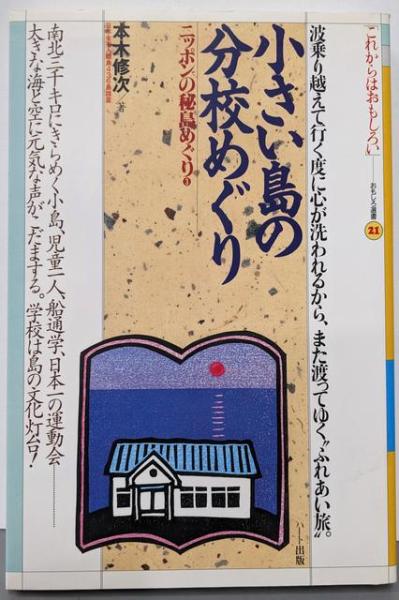 これからはおもしろい
おもしろ選書
21
波乗り越えて行く度に心が洗われるから、また渡ってゆく“ふれあい旅”。
小さい島の
分校めぐり
ニッポンの秘島めぐり③
本木修次 著
南北三千キロにきらめく小島、児童一人、船通学、日本一の運動会…………
大きな海と空に元気な声が、こだまする。学校は島の文化灯台！
ハート出版